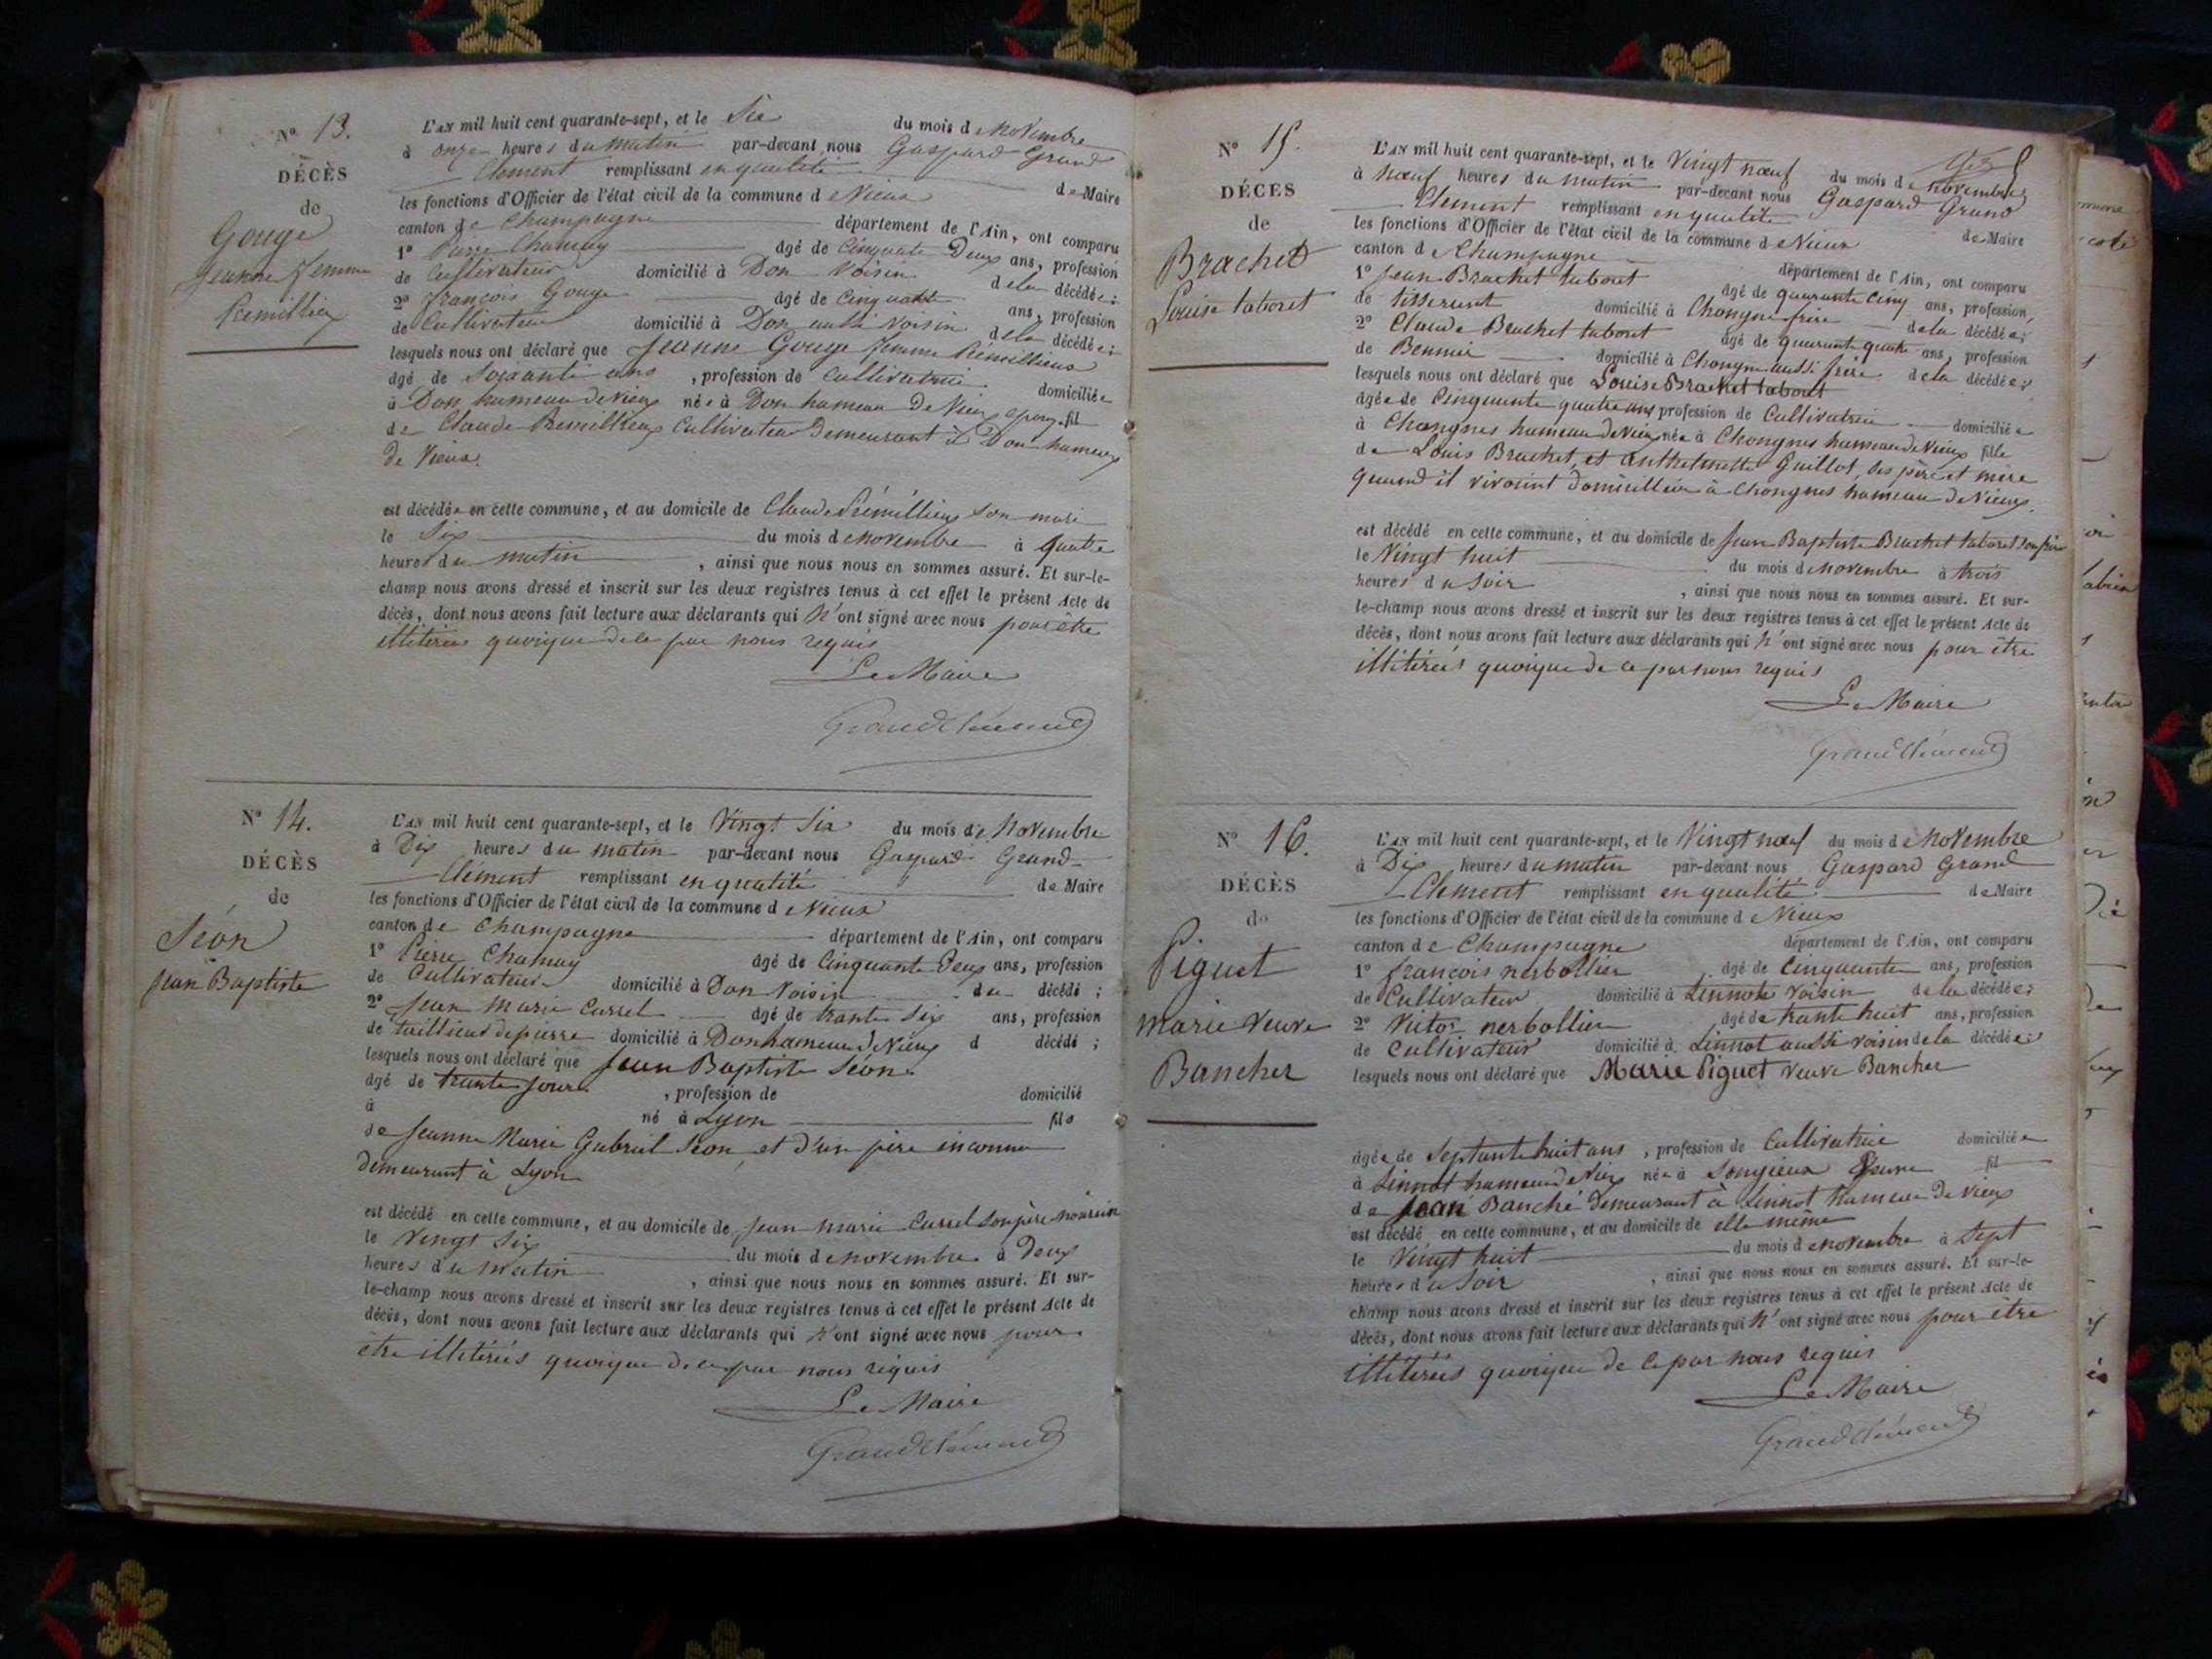 N° 13.
DÉCÈS
de
Gouge
Jeanne femme
Remillieux
L'AN mil huit cent quarante-sept, et le Six du mois de Novembre
à onze heures du matin par-devant nous Gaspard Grand
Clement remplissant en qualité de Maire
les fonctions d'Officier de l'état civil de la commune de Vieux
canton de Champagne département de l'Ain, ont comparu
1° Pierre Chamay âgé de Cinquante Deux ans, profession
de Cultivateur domicilié à Don Voisin de la décédée;
2° François Gouge âgé de Cinquante ans, profession
de Cultivateur domicilié à Don aussi voisin de la décédée;
lesquels nous ont déclaré que Jeanne Gouge femme Rémillieux
âgé de Soixante ans, profession de Cultivatrice domiciliée
à Don hameau de vieux née à Don hameau De Vieux épouse fil
de Claude Remillieux Cultivateur Demeurant à Don hameau
de Vieux.
est décédée en cette commune, et au domicile de Claude Rémillieux son mari
le Six du mois de Novembre à quatre
heures du matin, ainsi que nous nous en sommes assuré. Et sur-le-
champ nous avons dressé et inscrit sur les deux registres tenus à cet effet le présent Acte de
décès, dont nous avons fait lecture aux déclarants qui n'ont signé avec nous pour être
illitérés quoique de ce par nous requis
Le Maire
Grand Clément
N° 14.
DÉCÈS
de
Séon
Jean Baptiste
L'AN mil huit cent quarante-sept, et le Vingt Six du mois de Novembre
à Dix heures du matin par-devant nous Gaspard Grand
Clément remplissant en qualité de Maire
les fonctions d'Officier de l'état civil de la commune de Vieux
canton de Champagne département de l'Ain, ont comparu
1° Pierre Chamay âgé de Cinquante Deux ans, profession
de Cultivateur domicilié à Don Voisin du décédé;
2° Jean Marie Carrel âgé de trante Six ans, profession
de taillieur de pierre domicilié à Don hameau de Vieux d décédé;
lesquels nous ont déclaré que Jean Baptiste Séon
âgé de trante jours, profession de domicilié
à né à Lyon fils
de Jeanne Marie Gabriel Séon et d'un père inconnu
Demeurant à Lyon
est décédé en cette commune, et au domicile de Jean Marie Carrel son père nourricier
le Vingt Six du mois de Novembre à Deux
heures du matin, ainsi que nous nous en sommes assuré. Et sur-
le-champ nous avons dressé et inscrit sur les deux registres tenus à cet effet le présent Acte de
décès, dont nous avons fait lecture aux déclarants qui n'ont signé avec nous pour
être illitérés quoique de ce par nous requis
Le Maire
Grand Clément
N° 15.
DÉCÈS
de
Brachet
Louise taboret
L'AN mil huit cent quarante-sept, et le Vingt nœuf du mois de novembre
à Nœuf heures du matin par-devant nous Gaspard Grand
Clement remplissant en qualité de Maire
les fonctions d'Officier de l'état civil de la commune de Vieux
canton de Champagne département de l'Ain, ont comparu
1° Jean Brachet tabout âgé de quarante cinq ans, profession
de tisserant domicilié à Chongne frère de la décédée;
2° Claude Brachet tabout âgé de quarante quatre ans, profession
de domicilié à Chongne aussi frère de la décédée;
lesquels nous ont déclaré que Louise Brachet tabout
âgée de Cinquante quatre ans profession de Cultivatrice domiciliée
à Chongnes hameau de Vieux née à Chongnes hameau de Vieux fille
de Louis Brachet, et Anthelmette Guillot, ses père et mère
quand il vivaint domicillier à Chongnes hameau de Vieux.
est décédé en cette commune, et au domicile de Jean Baptiste Brachet taboret son frère
le Vingt huit du mois de novembre à trois
heures du Soir, ainsi que nous nous en sommes assuré. Et sur-
le-champ nous avons dressé et inscrit sur les deux registres tenus à cet effet le présent Acte de
décès, dont nous avons fait lecture aux déclarants qui n'ont signé avec nous pour être
illitérés quoique de ce par nous requis
Le Maire
Grand Clément
N° 16.
DÉCÈS
de
Piguet
marie Veuve
Bancher
L'AN mil huit cent quarante-sept, et le Vingt nœuf du mois de Novembre
à Dix heures du matin par-devant nous Gaspard Grand
Clement remplissant en qualité de Maire
les fonctions d'Officier de l'état civil de la commune de Vieux
canton de Champagne département de l'Ain, ont comparu
1° françois nerbollier âgé de Cinquante ans, profession
de Cultivateur domicilié à Linnot voisin de la décédée;
2° Victor nerbollier âgé de trante huit ans, profession
de Cultivateur domicilié à Linnot aussi voisin de la décédée;
lesquels nous ont déclaré que Marie Piguet veuve Bancher
âgée de Septante huit ans, profession de Cultivatrice domiciliée
à Linnot hameau de Vieux née à Songieux Veuve fil
de Jean Banché demeurant à Linnot hameau De Vieux
est décédé en cette commune, et au domicile de elle même
le Vingt huit du mois de novembre à Sept
heures du Soir, ainsi que nous nous en sommes assuré. Et sur-le-
champ nous avons dressé et inscrit sur les deux registres tenus à cet effet le présent Acte de
décès, dont nous avons fait lecture aux déclarants qui n'ont signé avec nous pour être
illitérés quoique de ce par nous requis
Le Maire
Grand Clément